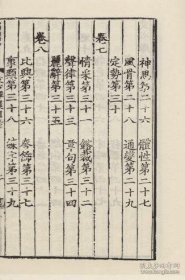 神思第二十六　體性第二十七
風骨第二十八　通變第二十九
定勢第三十
卷七
情采第三十一　鎔裁第三十二
聲律第三十三　章句第三十四
麗辭第三十五
卷八
比興第三十六　夸飾第三十七
事類第三十八　練字第三十九